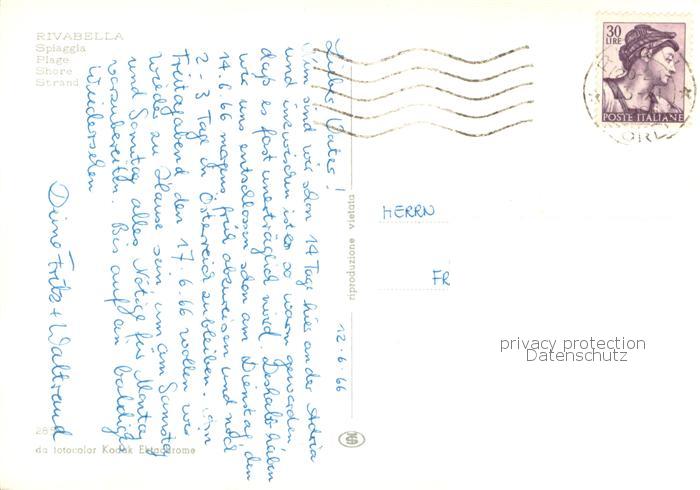 RIVABELLA
Spiaggia
Plage
Shore
Strand
12.6.66
Liebes Vater!
Nun sind wir schon 14 Tage hier an der Adria
und inzwischen ist es so warm geworden
daß es fast unerträglich wird. Deshalb haben
wir uns entschlossen schon am Dienstag, den
14.6.66 morgens früh abzureisen und noch
2-3 Tage in Österreich zu bleiben. Am
Freitagabend den 17.6.66 wollen wir
wieder zu Hause sein, um am Samstag
und Sonntag alles Nötige für Montag
vorzubereiten. Bis auf ein baldiges
Wiedersehen
Deine Fritz + Waltraud
riproduzione vietata
30
LIRE
POSTE ITALIANE
FORLI
HERRN
FR
privacy protection
Datenschutz
da fotocolor Kodak Ektachrome